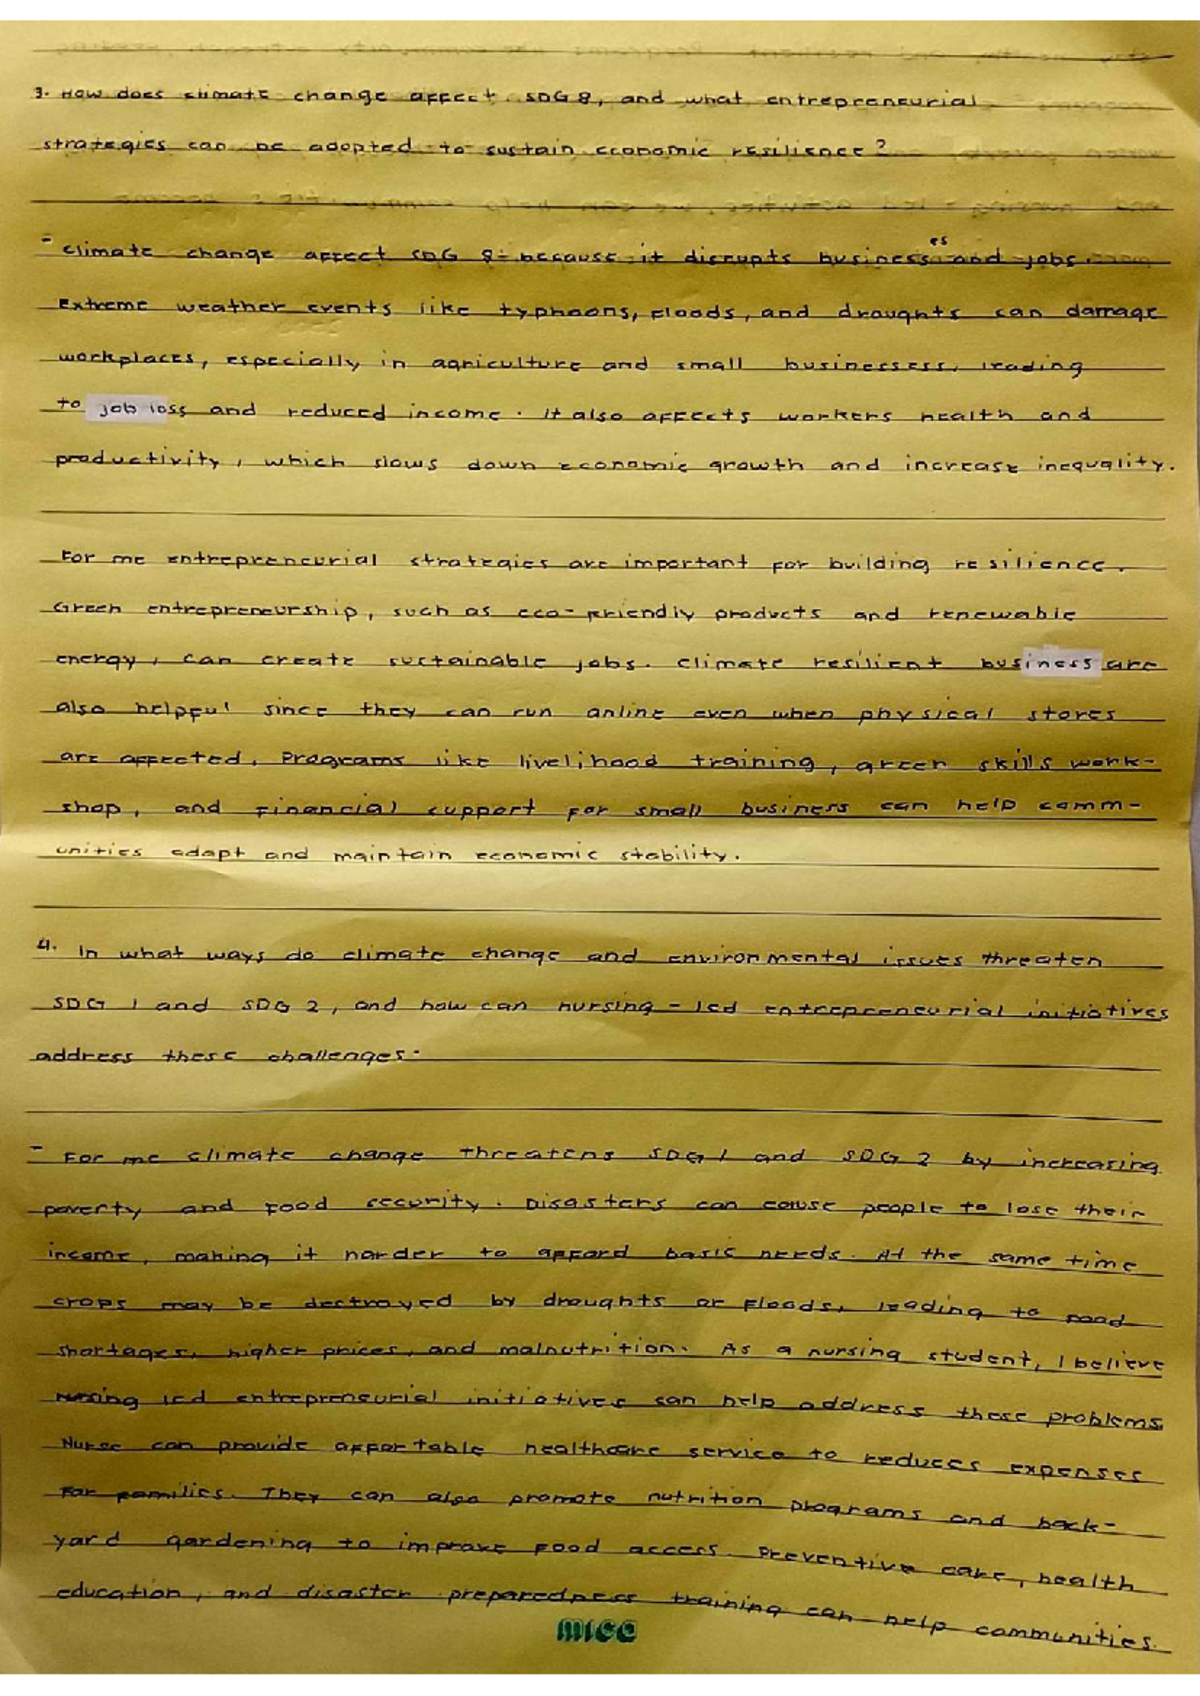 3. How does climate change affect SDG 8, and what entrepreneurial
strategies can be adopted to sustain economic resilience?
- climate change affect SDG 8 because it disrupts businesses and jobs.
Extreme weather events like typhoons, floods, and draughts can damage
workplaces, especially in agriculture and small businessess, leading
to job loss and reduced income. It also affects workers health and
productivity, which slows down economic growth and increase inequality.
For me entrepreneurial strategies are important for building resilience.
Green entrepreneurship, such as eco-friendly products and renewable
energy, can create sustainable jobs. Climate resilient business are
also helpful since they can run online even when physical stores
are affected. Programs like livelihood training, green skills work-
shop, and financial support for small business can help comm-
unities adapt and maintain economic stability.
4. In what ways do climate change and environmental issues threaten
SDG 1 and SDG 2, and how can nursing-led entrepreneurial initiatives
address these challenges.
- For me climate change threatens SDG 1 and SDG 2 by increasing
poverty and food security. Disasters can cause people to lose their
income, making it harder to afford basic needs. At the same time
crops may be destroyed by droughts or floods, leading to food
shortages, higher prices, and malnutrition. As a nursing student, I believe
nursing led entrepreneurial initiatives can help address these problems.
Nurse can provide affortable healthcare service to reduces expenses
for families. They can also promote nutrition programs and back-
yard gardening to improve food access. Preventive care, health
education, and disaster preparedness training can help communities.
micc